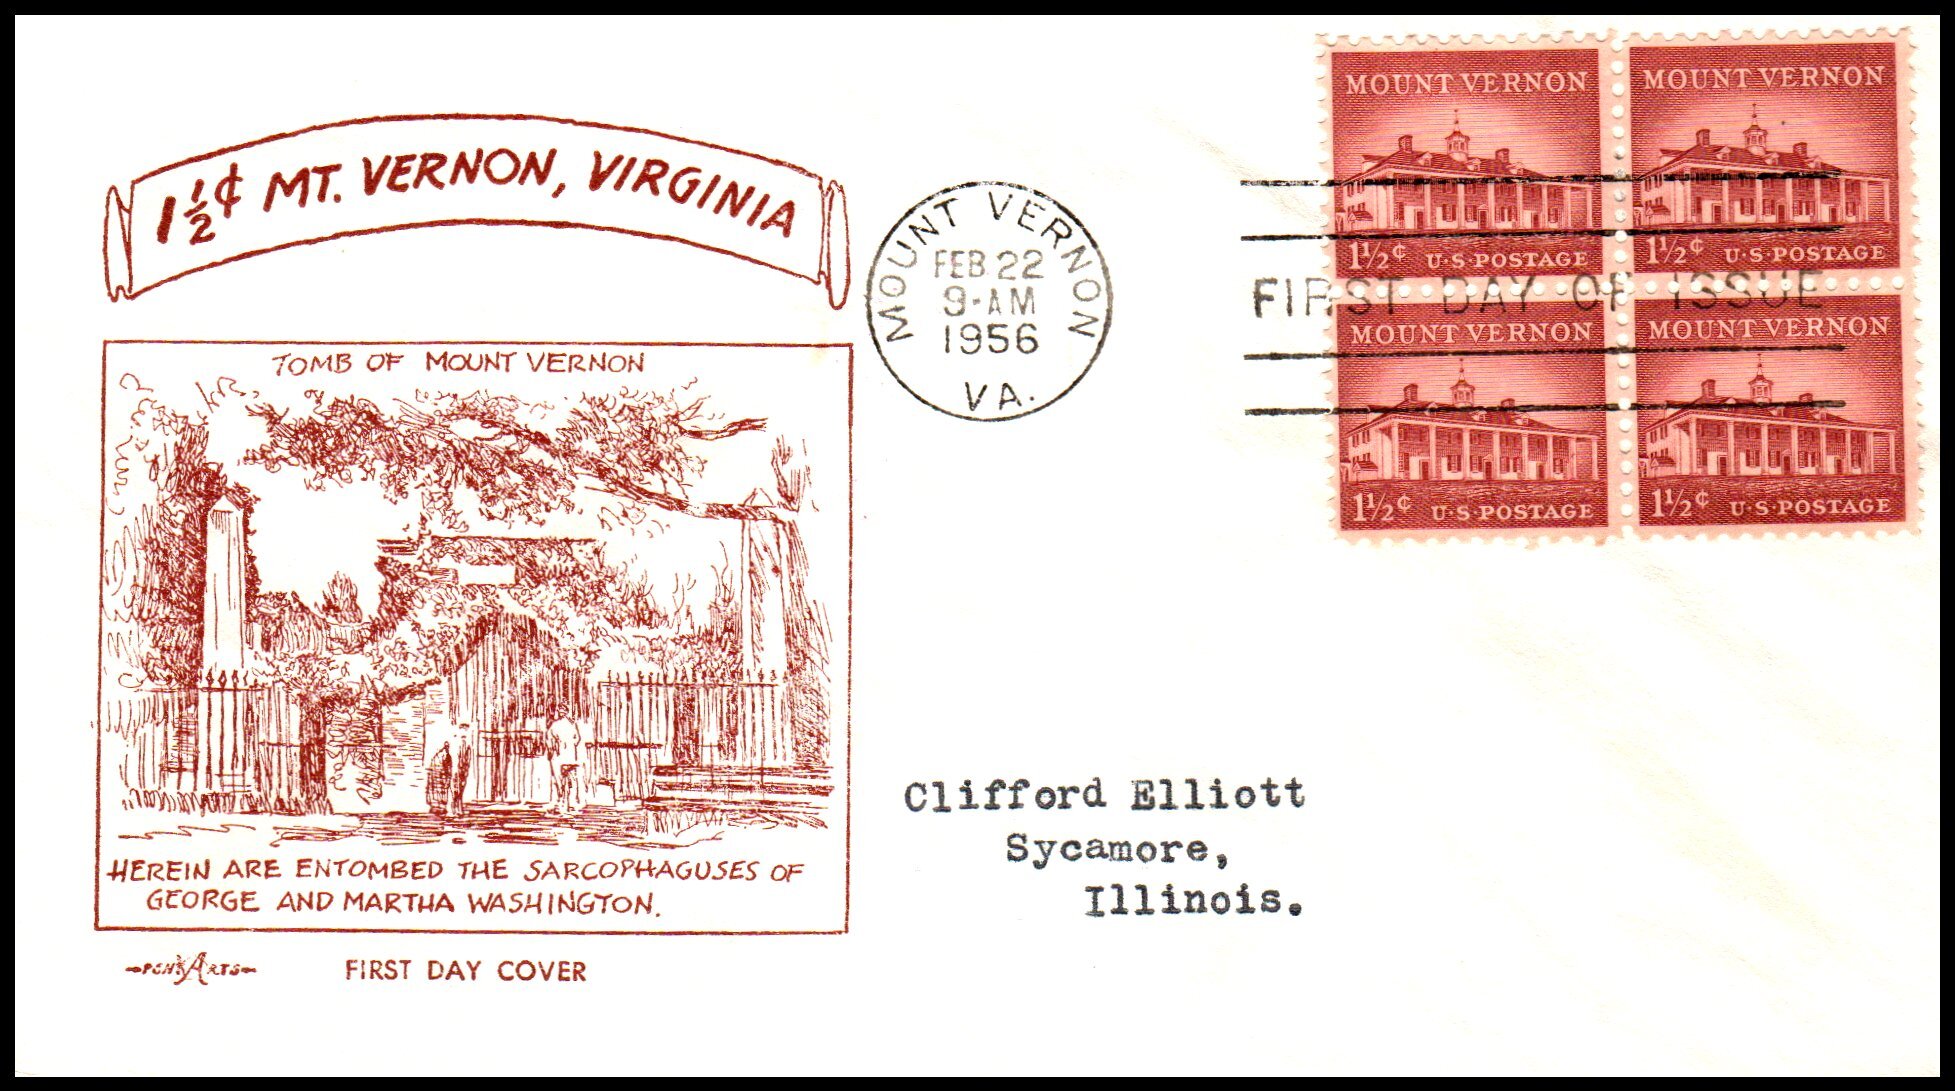 1½¢ MT. VERNON, VIRGINIA
TOMB OF MOUNT VERNON
HEREIN ARE ENTOMBED THE SARCOPHAGUSES OF
GEORGE AND MARTHA WASHINGTON.
PENT ARTS
FIRST DAY COVER
MOUNT VERNON
FEB 22
9-AM
1956
VA.
FIRST DAY OF ISSUE
MOUNT VERNON
1½¢ U·S·POSTAGE
MOUNT VERNON
1½¢ U·S·POSTAGE
MOUNT VERNON
1½¢ U·S·POSTAGE
MOUNT VERNON
1½¢ U·S·POSTAGE
Clifford Elliott
Sycamore,
Illinois.